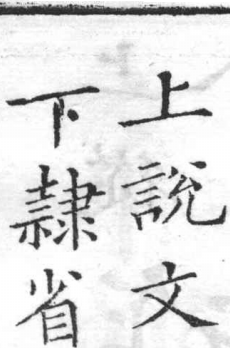 上說文
下隷省